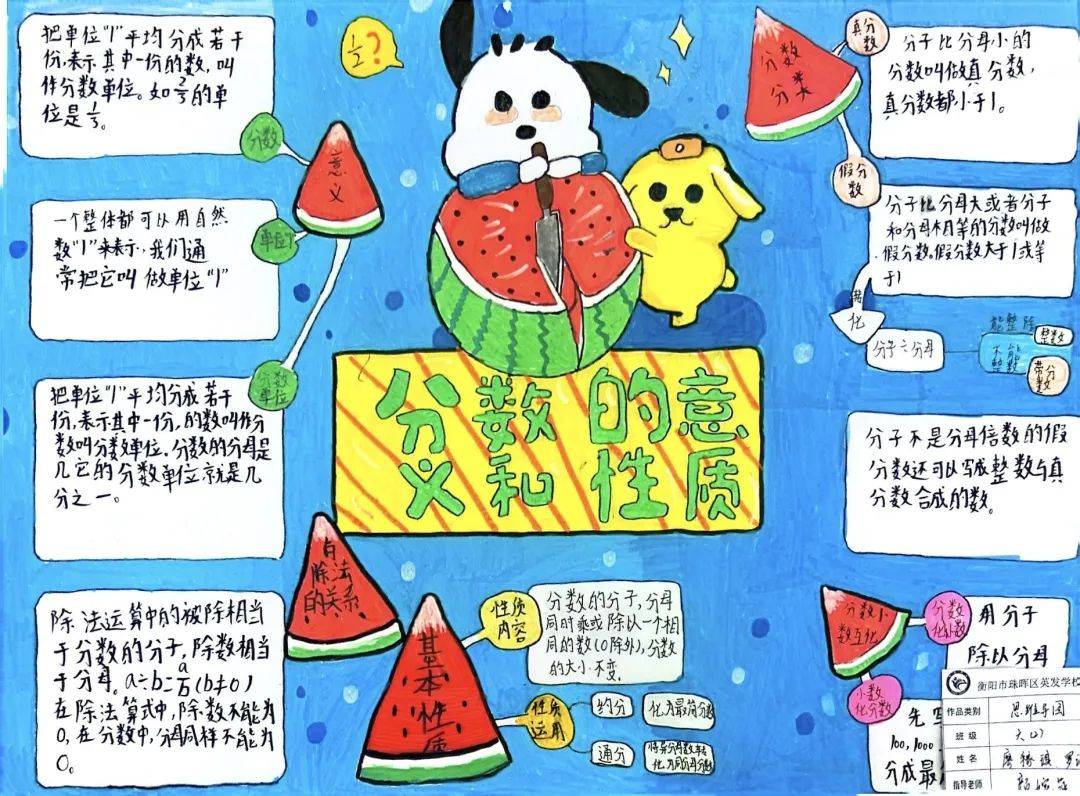 把单位"1"平均分成若干
份,表示其中一份的数,叫
作分数单位。如2/3的单
位是1/3。
分数
意义
一个整体都可以用自然
数"1"来表示,我们通
常把它叫做单位"1"
单位1
把单位"1"平均分成若干
份,表示其中一份,的数叫作分
数叫分数单位.分数的分母是
几它的分数单位就是几
分之一。
分数
单位
1/2?
分数的意
义和性质
分数
分类
真分数
分子比分母小的
分数叫做真分数,
真分数都小于1。
假分数
分子比分母大或者分子
和分母相等的分数叫做
假分数。假分数大于1或等
于1
转化
分子÷分母
能整除
整数
不能整数
带分数
分子不是分母倍数的假
分数还可以写成整数与真
分数合成的数。
与
除法
的关系
除法运算中的被除相当
于分数的分子,除数相当
于分母。a÷b=a/b(b≠0)
在除法算式中,除数不能为
0,在分数中,分母同样不能为
0。
基本性质
性质
内容
分数的分子,分母
同时乘或除以一个相
同的数(0除外),分数
的大小不变.
性质
运用
约分
化为最简分数
通分
将异分母分数转
化为同分母分数
分数小
数互化
分数
化小数
用分子
除以分母
小数
化分数
先写
100,1000
分成最
衡阳市珠晖区英发学校
作品类别
思维导图
班级
姓名
指导老师